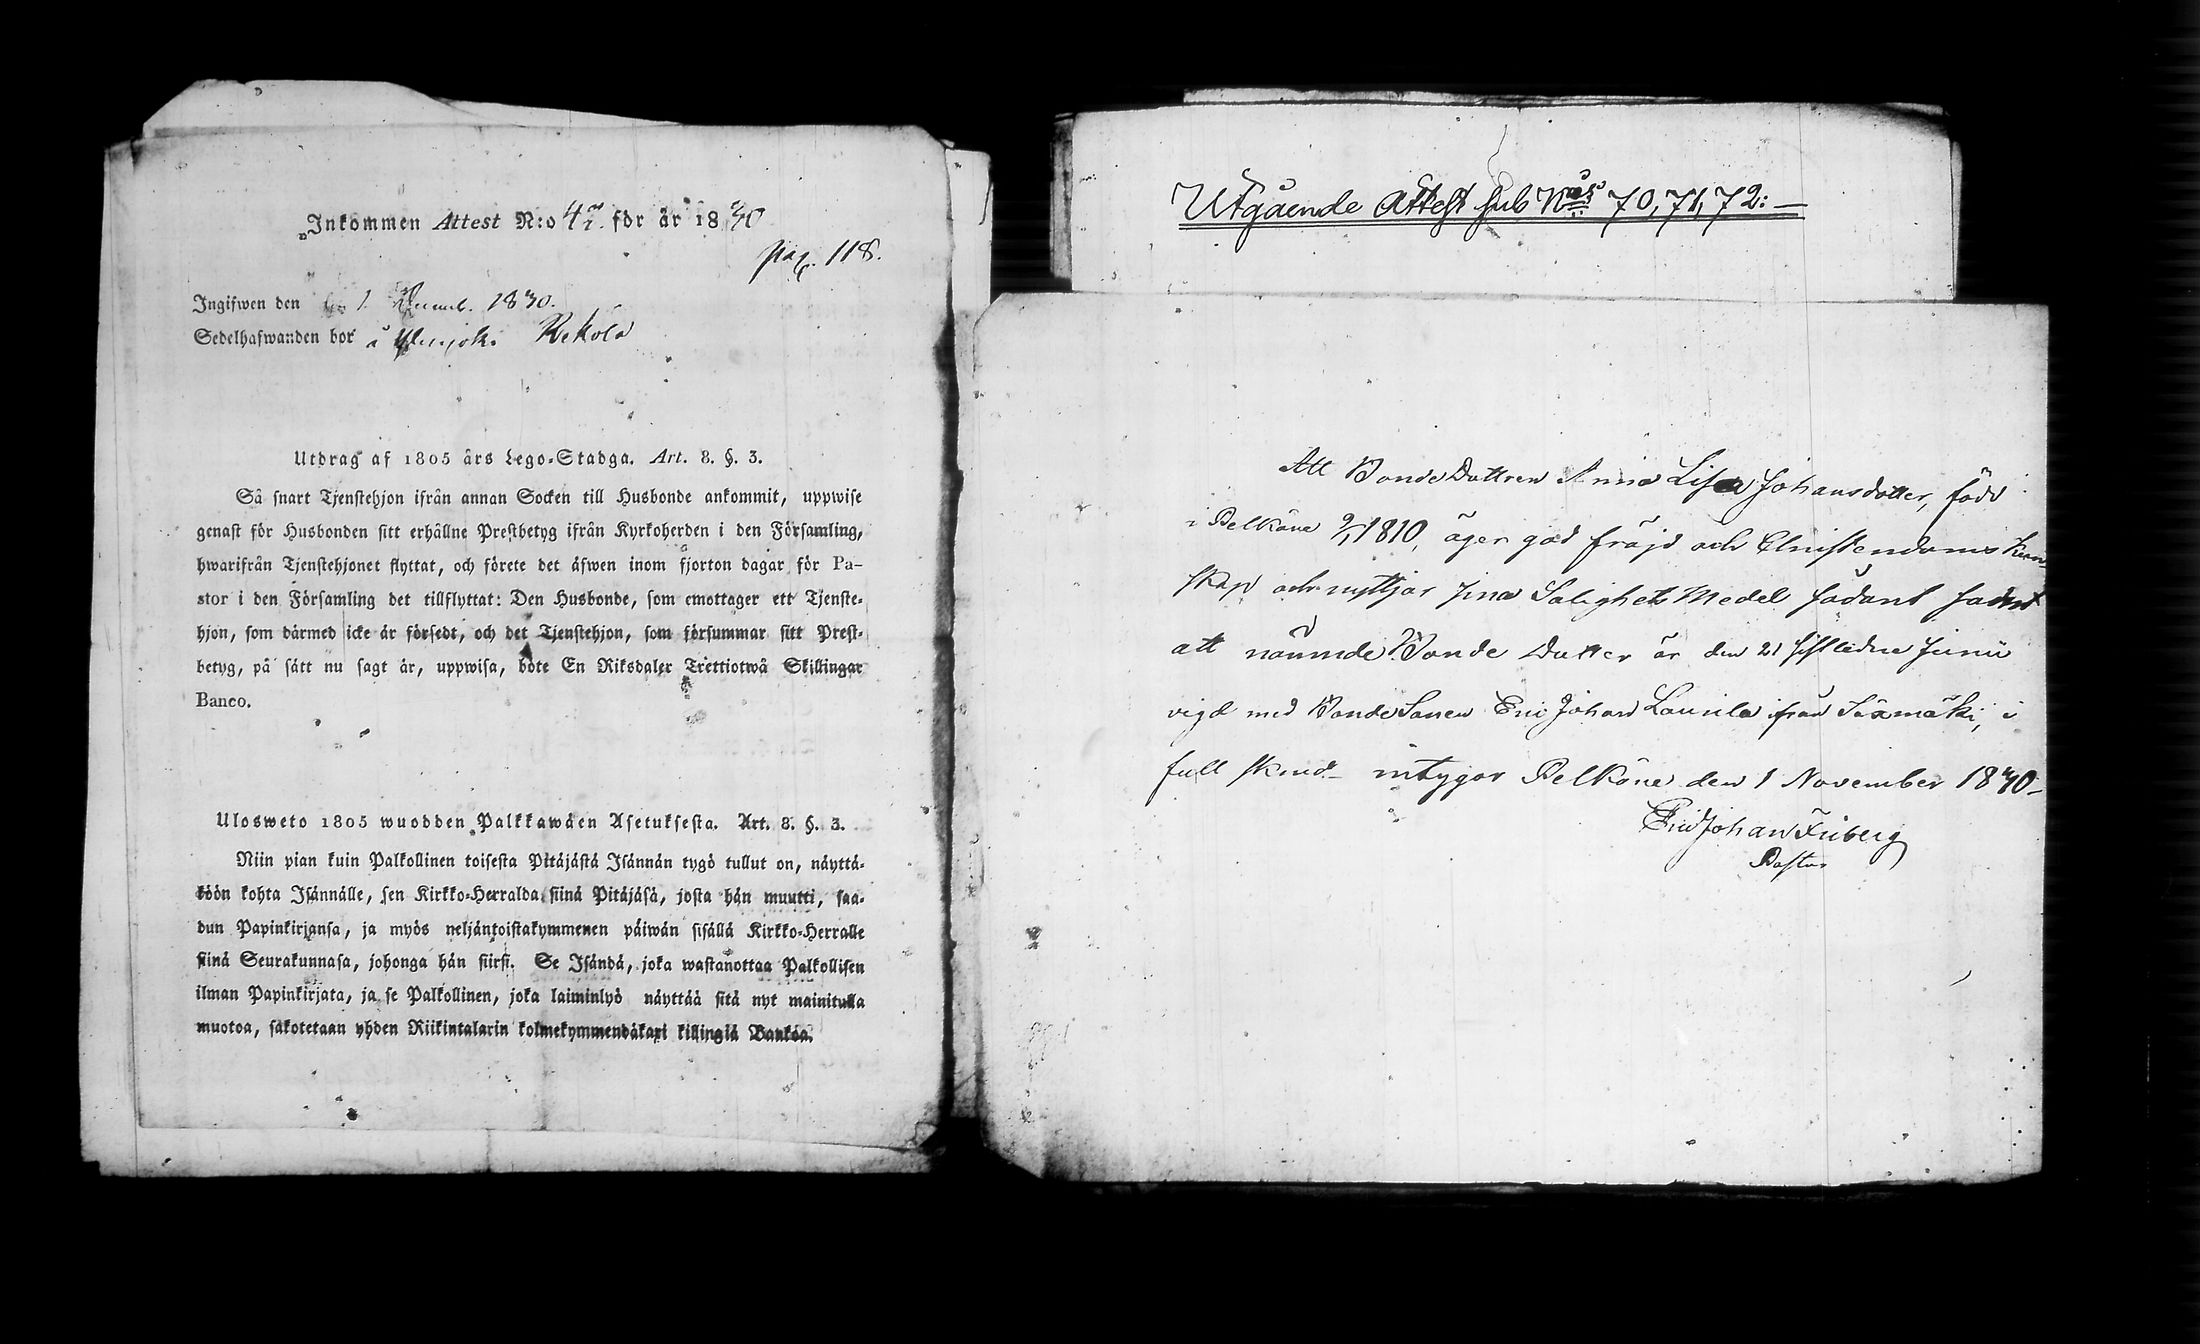 Inkommen Attest N:o 42. för år 1830
pag. 118.
Ingifwen den 1. Decemb. 1830.
Sedelhafwanden bor å Rekola
Utdrag af 1805 års Lego-Stadga. Art. 8. §. 3.
Så snart Tjenstehjon ifrån annan Socken till Husbonde ankommit, uppwise
genast för Husbonden sitt erhållne Prestbetyg ifrån Kyrkoherden i den Församling,
hwarifrån Tjenstehjonet flyttat, och förete det äfwen inom fjorton dagar för Pa-
stor i den Församling det tillflyttat: Den Husbonde, som emottager ett Tjenste-
hjon, som därmed icke är försedt, och det Tjenstehjon, som försummar sitt Prest-
betyg, på sätt nu sagt är, uppwisa, böte En Riksdaler Trettiotwå Skillingar
Banco.
Ulosweto 1805 wuodden Palkkawäen Asetuksesta. Art. 8. §. 3.
Niin pian kuin Palkollinen toisesta Pitäjästä Isännän tygö tullut on, näyttä-
köön kohta Isännälle, sen Kirkko-Herralda siinä Pitäjäsä, josta hän muutti, saa-
dun Papinkirjansa, ja myös neljäntoistakymmenen päiwän sisällä Kirkko-Herralle
siinä Seurakunnasa, johonga hän siirsi. Se Isändä, joka wastanottaa Palkollisen
ilman Papinkirjata, ja se Palkollinen, joka laiminlyö näyttää sitä nyt mainitulla
muotoa, sakotetaan yhden Riikintalarin kolmekymmendäkaxi killingiä Bankoa.
Utgående Attest sub N:is 70, 71, 72:—
Att Bonde Dottren Anna Lisa Johansdotter, född
i Pelkäne 9/1 1810, äger god fräjd och Christendoms kun-
skap och nyttjar sina Salighets Medel sådant samt
att nämnde Bonde Dotter är den 21 sistledne Junii
vigd med Bonde Sonen Eric Johan Laurila ifrån Sääxmäki, i
full skrud- intygar Pelkäne den 1 November 1830-
Eric Johan Friberg
Pastor